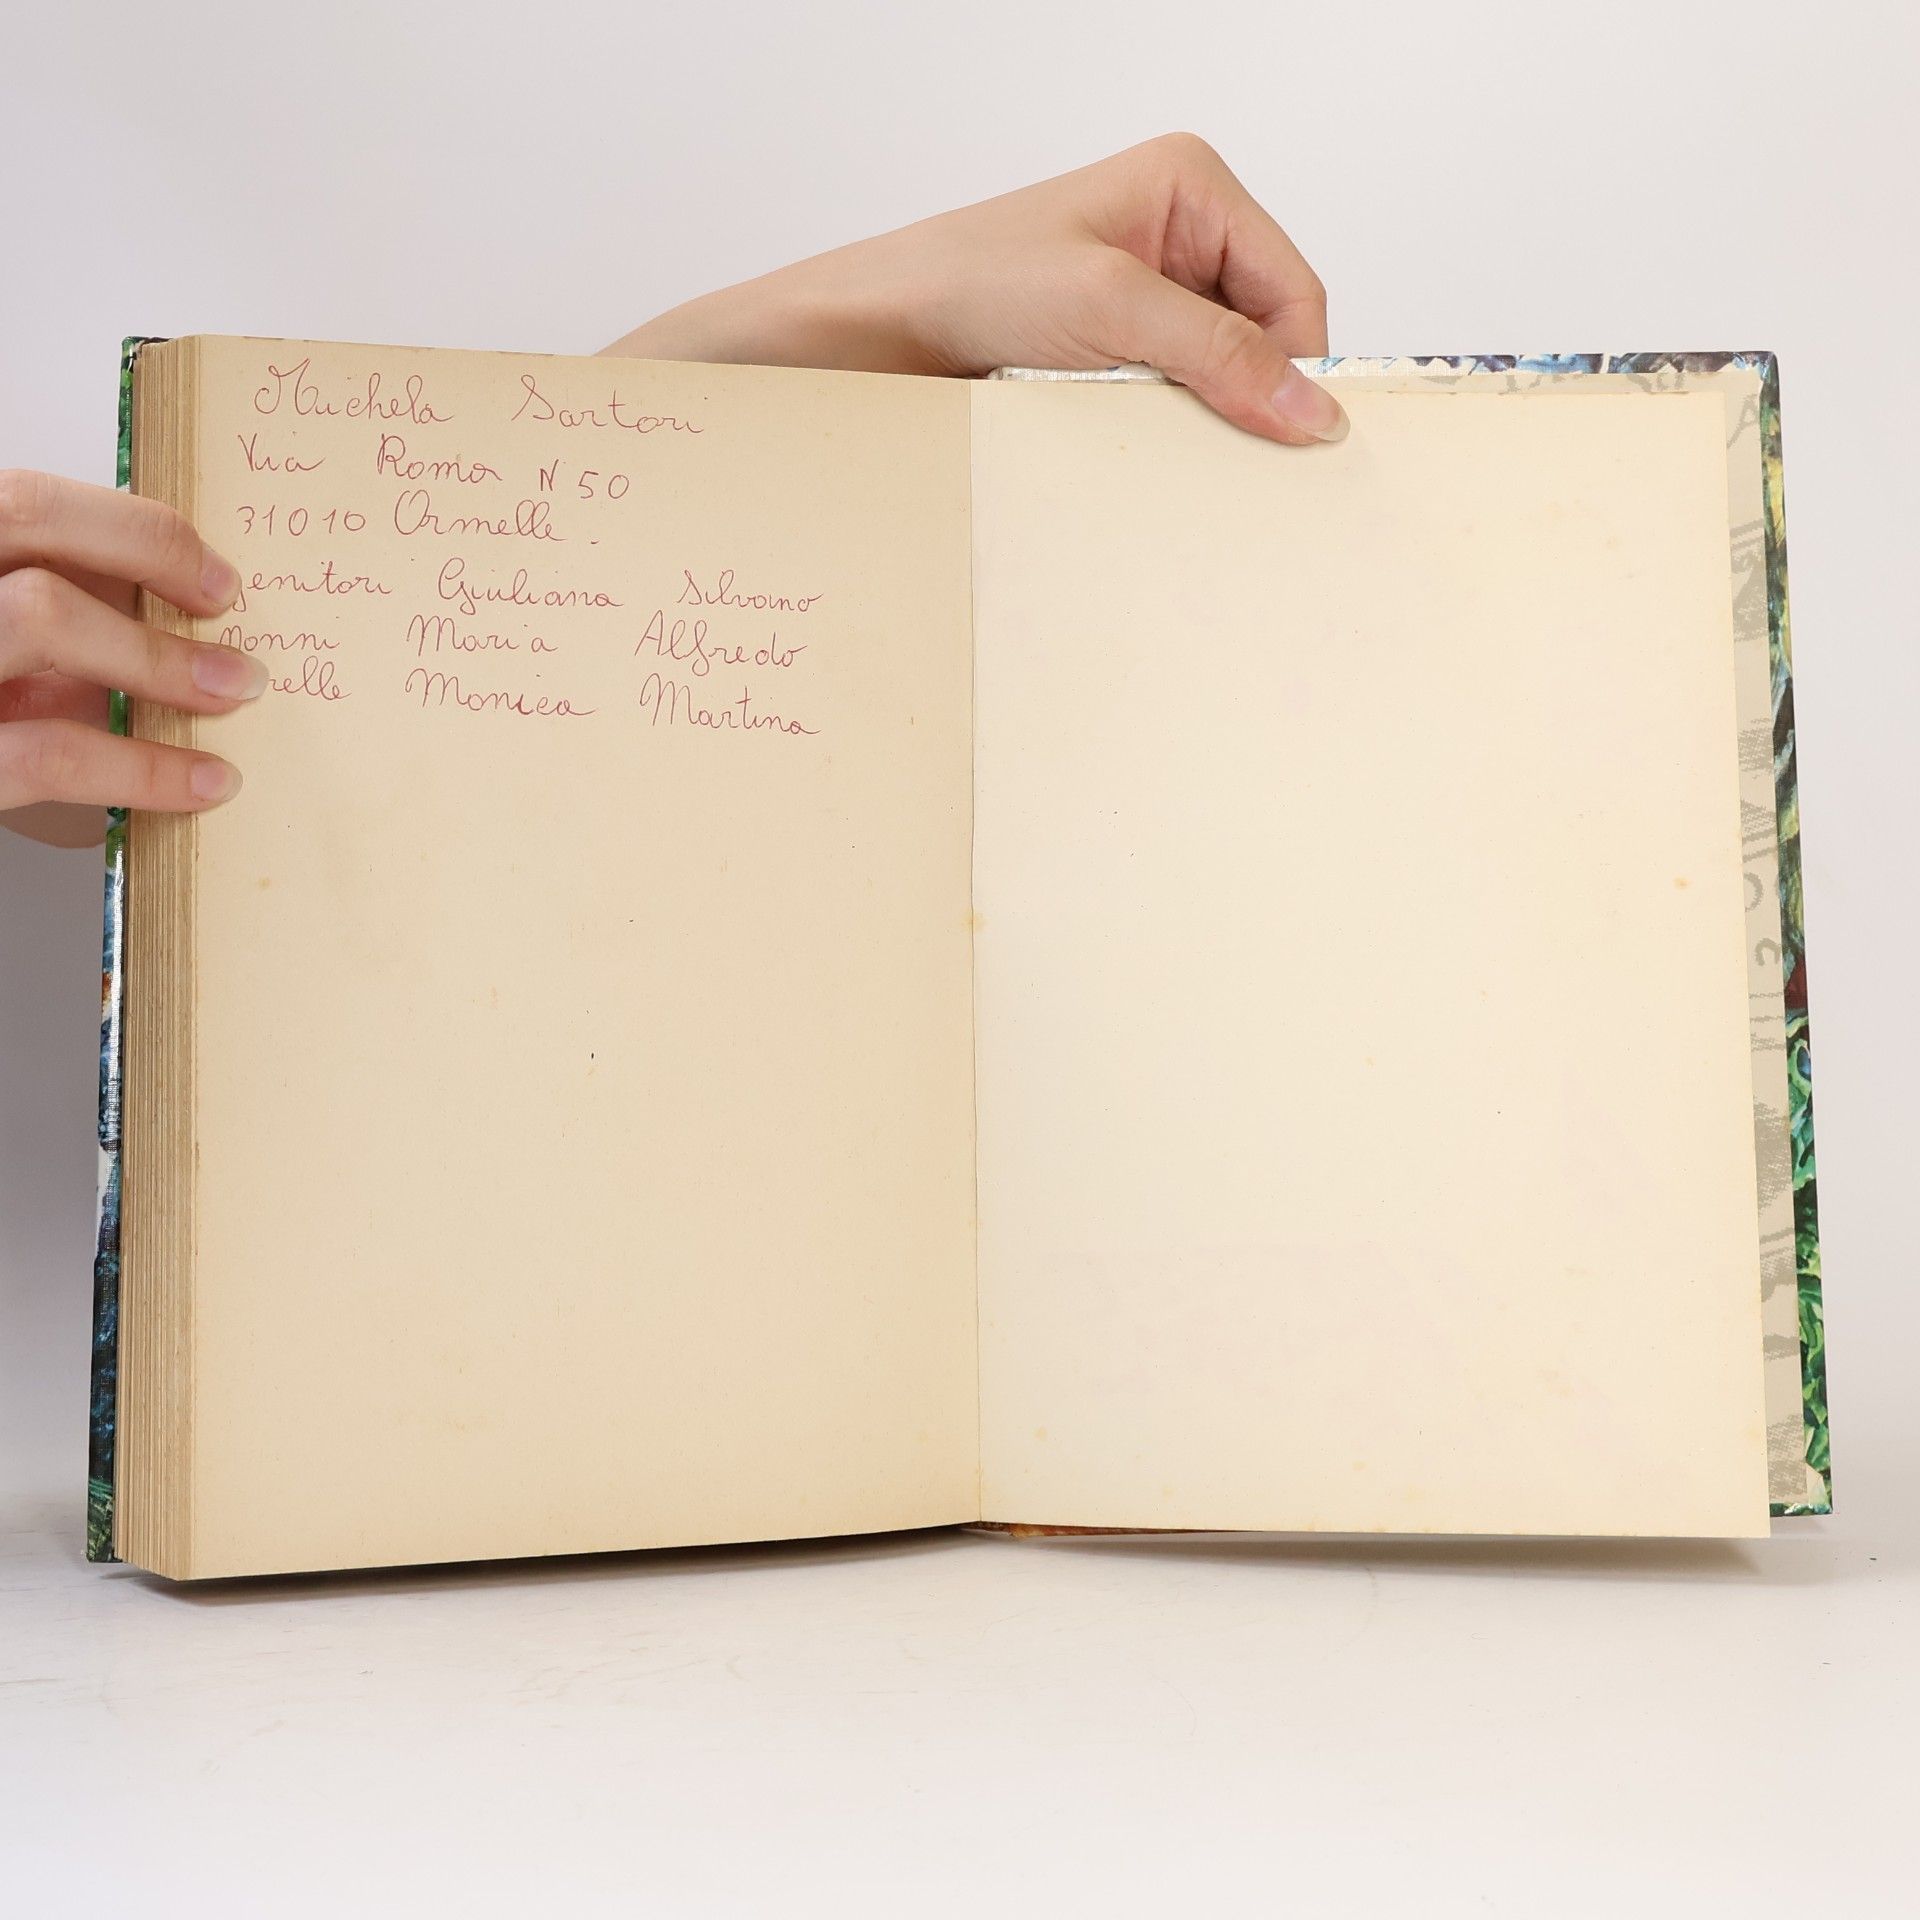 Michela Sartori
Via Roma N 50
31010 Ormelle .
genitori Giuliana Silvano
nonni Maria Alfredo
relle Monica Martina